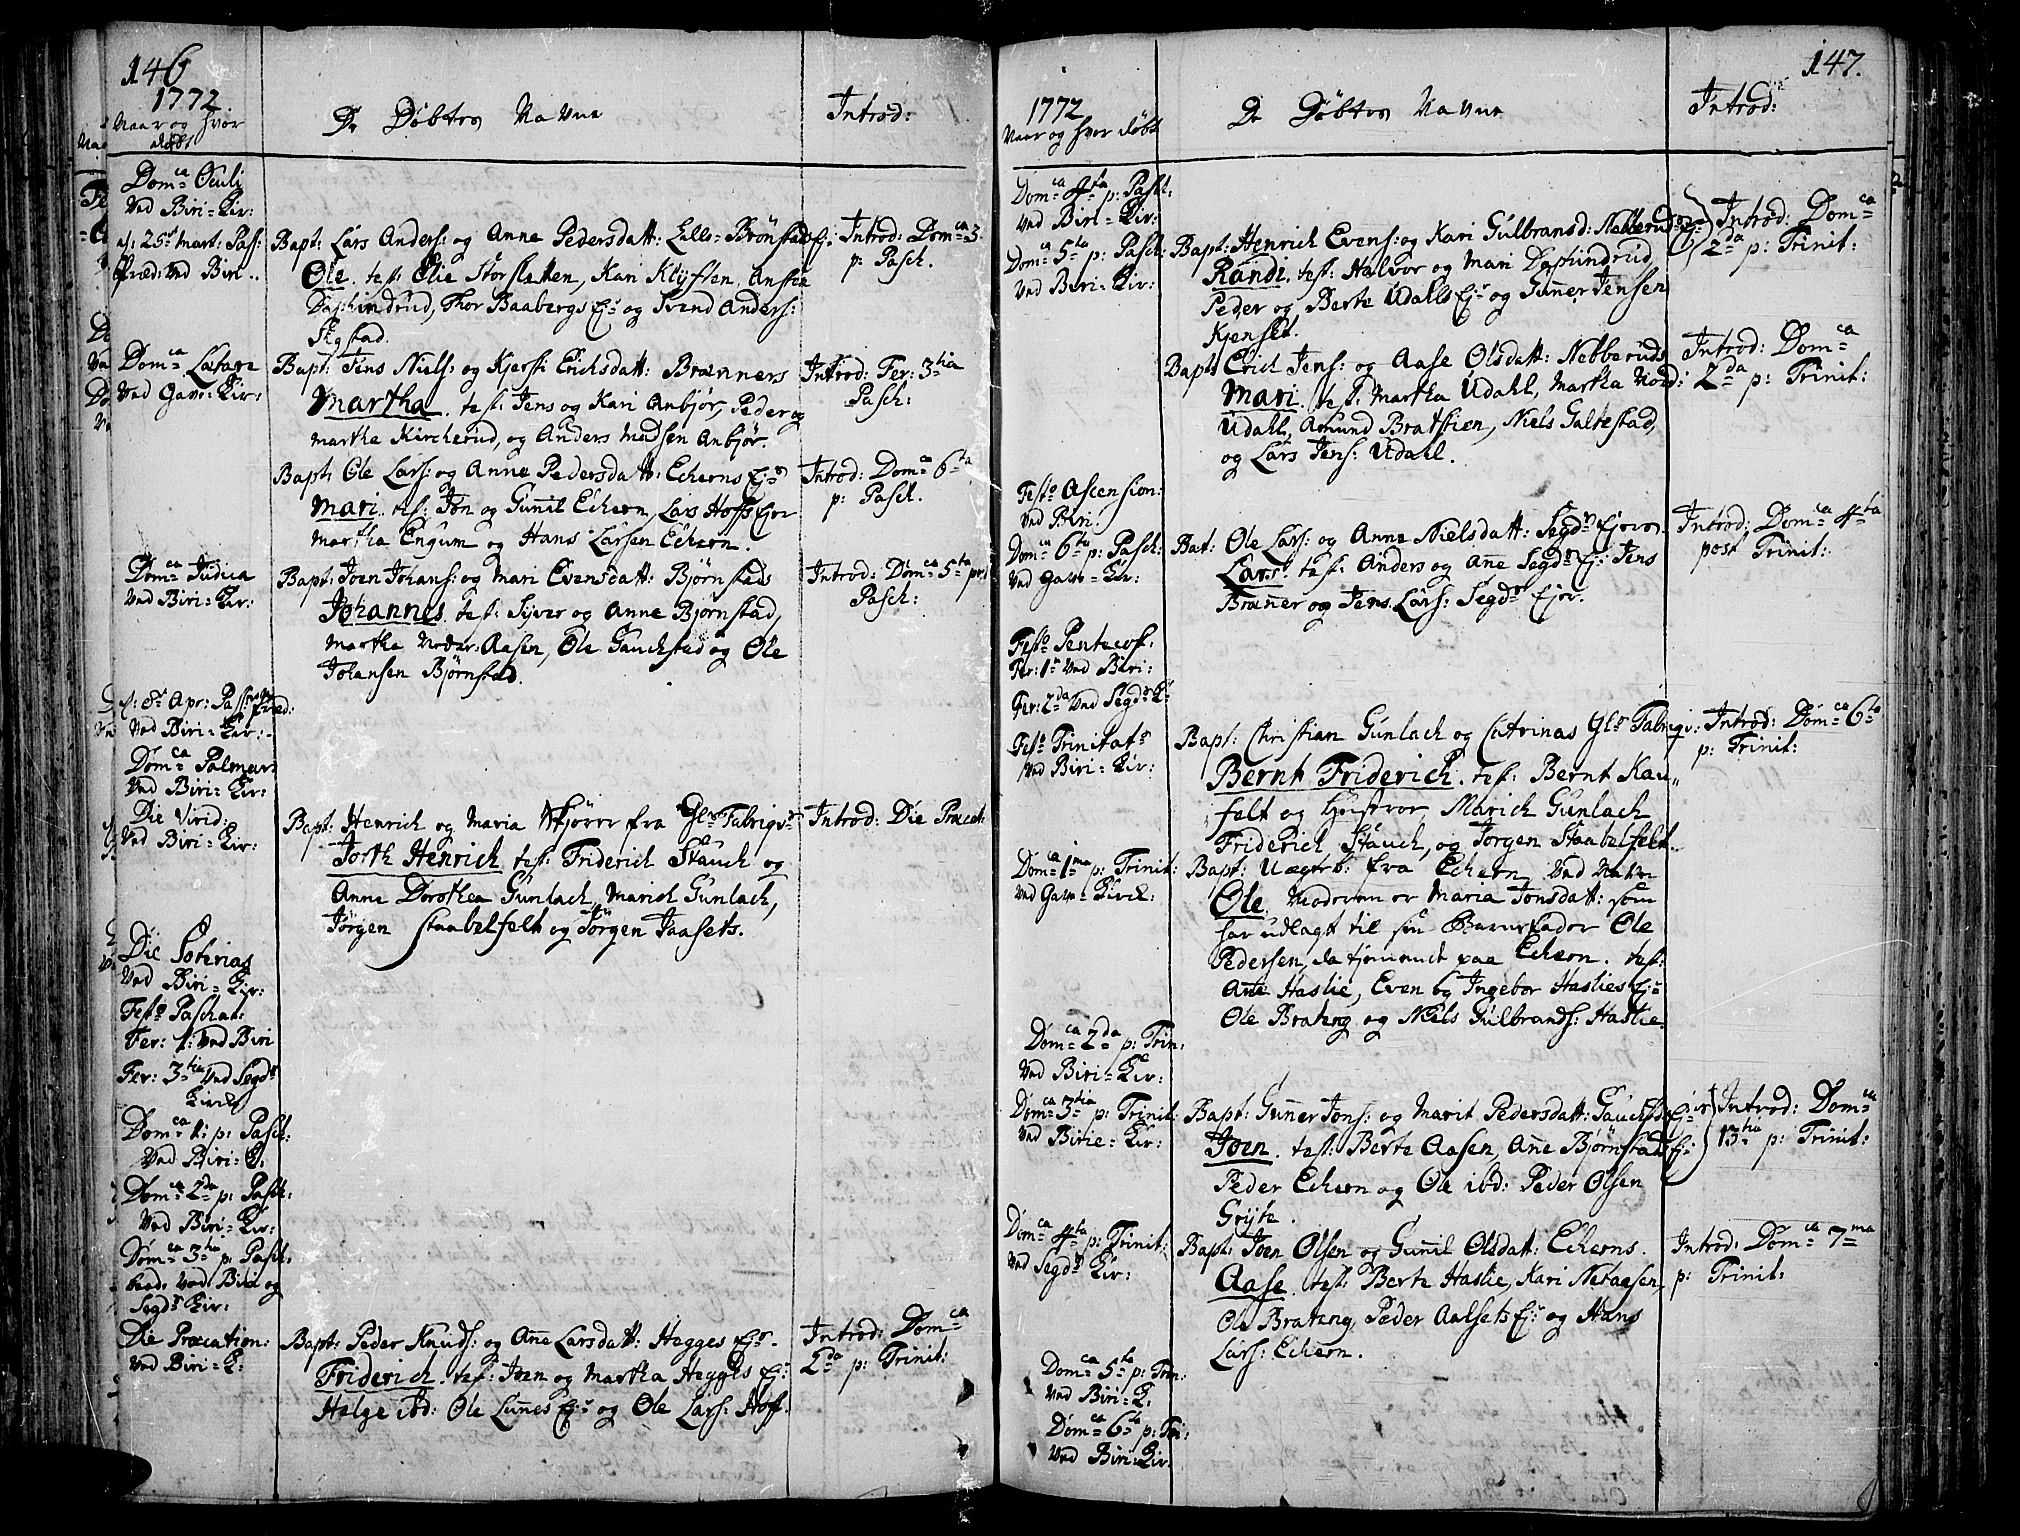 146
1772.
Naar og hvor
døbt
De Døbtes Navne
Introd:
Dom:ca Oculi
Ved Biri-Kir:
d: 25t Mart: Pas:
Præd: Ved Biri..
Bapt: Lars Anders: og Anne Pedersdatt: Lille-Brønstad Ej:
Ole. test: Elie Storsletten, Kari Klÿften, Anstea
Daphindrud, Thor Baabergs Ejr og Svend Anders:
Skystad.
Introd: Domca 3.
p: Pasch.
Domca Lætare
Ved Gav: Kir:
Bapt: Jens Niels: og Kjersti Erichsdatt: Brænners
Martha. test: Jens og Kari Anbjør, Peder og
Martha Kircherud, og Anders Madsen Anbjør.
Introd: Fer: 3tia
Pasch:
Bapt: Ole Lars: og Anne Pedersdatt: Echerns Ejr
Mari. test: Jon og Gunil Echern, Lars Hoffs Ejer
Martha Engum og Hans Larsen Echern.
Introd: Domca 6ta
p: Pasch.
Domca Judica
Ved Biri-Kir:
Bapt: Joen Johans: og Mari Evensdatt: Bjørnstads
Johannes. test: Sÿver og Anne Bjørnstad,
Martha Nedr: Aasen, Ole Gauchstad og Ole
Johansen Bjørnstad.
Introd: Domca 5ta p:
Pasch:
d: 8t Apr: Pass: Præd:
Ved Biri-Kir:
Domca Palmar:
Ved Biri-Kir:
Die Virid:
Ved Biri-Kir:
Bapt: Henrich og Maria Skjører fra Gls Fabriqv:
Jorth Henrich test: Friderich Stauch og
Anne Dorothea Gunlach, Marich Gunlach,
Jørgen Staabelfelt og Jørgen Jaasets.
Introd: Die Præcat:
Die Soterias
Ved Biri-Kir:
Festo Paschat:
Fer: 1: Ved Biri
Fer: 3tia Ved Segdr
Kirche
Domca 1: p: Pasch:
Ved Biri-K:
Domca 2da p: Pasch:
Ved Biri-Kir:
Domca 3tia p: Pasch:
baade Ved Biri og
Segdr Kir:
Die Præcation:
Ved Biri-K:
Bapt: Peder Knuds: og Ane Larsdatt: Hegges Ejr.
Friderich. test: Joen og Martha Hegges Ej:
Helge ibd: Ole Lunes Ejr og Ole Lars: Hoff.
Introd: Domca
2da p: Trinit:
147.
1772
Naar og hvor døbt
De Døbtes Navne
Introd:
Domca 4ta p: Pasch:
Ved Biri-Kir:
Domca 5ta p: Pasch:
Ved Biri-Kir:
Bapt: Henrich Evens: og Kari Gulbrands: Nebberuds Ej:
Randi. test: Halvor og Mari Daphindrud,
Peder og Berte Udahls Ejr og Guner Jensen
Kjenset.
Introd: Domca
2da p: Trinit:
Bapt: Erich Jens: og Aase Olsdatt: Nebberuds
Mari. test: Martha Udahl, Martha Nord:
Udahl, Amund Bratstien, Niels Galtestad,
og Lars Jens: Udahl.
Introd: Domca
2da p: Trinit:
Festo Ascension:
Ved Biri.
Domca 6ta p: Pasch:
Ved Gav-Kir:
Bat: Ole Lars: og Anne Nielsdatt: Segdr Ejere
Lars. test: Anders og Ane Segdr Ej: Jens
Bræner og Jens Lars: Segdr Ejer.
Introd: Domca 4ta
post Trinit:
Festo Pentecost.
Fer: 1: Ved Biri:
Fer: 2da Ved Segdr K:
Festo Trinitats
Ved Biri-Kir:
Bapt: Christian Gunlach og Catrinas Gls Fabriqv:
Bernt Friderich. test: Bernt Kau-
felt og Hustroe, Marich Gunlach
Friderich Stauch, og Jørgen Staabelfelt.
Introd: Domca 6ta
p: Trinit:
Domca 1ma p: Trinit:
Ved Gav-Kirch:
Bapt: Uægtb: fra Echern Ved Navn
Ole. Moderen er Maria Jonsdatt: som
har udlagt til sin Barnefader Ole
Pedersen, da tjennende paa Echern. test:
Ane Haslie, Even og Ingebor Haslies Ejr
Ole Brateng og Niels Gulbrands: Haslie.
Domca 2da p: Trin:
Ved Biri-Kir:
Domca 3tia p: Trinit:
Ved Birie-Kir:
Bapt: Guner Jons: og Marit Pedersdatt: Gauchstd Ejr
Joen. test: Berte Aasen, Ane Bjørnstad Ej:
Peder Echern og Ole ibd: Peder Olsen
Grÿte.
Introd: Domca
13tia p: Trinit:
Domca 4ta p: Trinit:
Ved Segdr Kir:
Bapt: Joen Olsen og Gunil Olsdatt: Echerns.
Aase. test: Berte Haslie, Kari Netaasen,
Ole Brateng, Peder Aalsets Ejr og Hans
Lars: Echern.
Introd: Domca 7ma
p: Trinit:
Domca 5ta p: Trin:
Ved Biri-K:
Domca 6ta p: Tri:
Ved Biri-Kir.